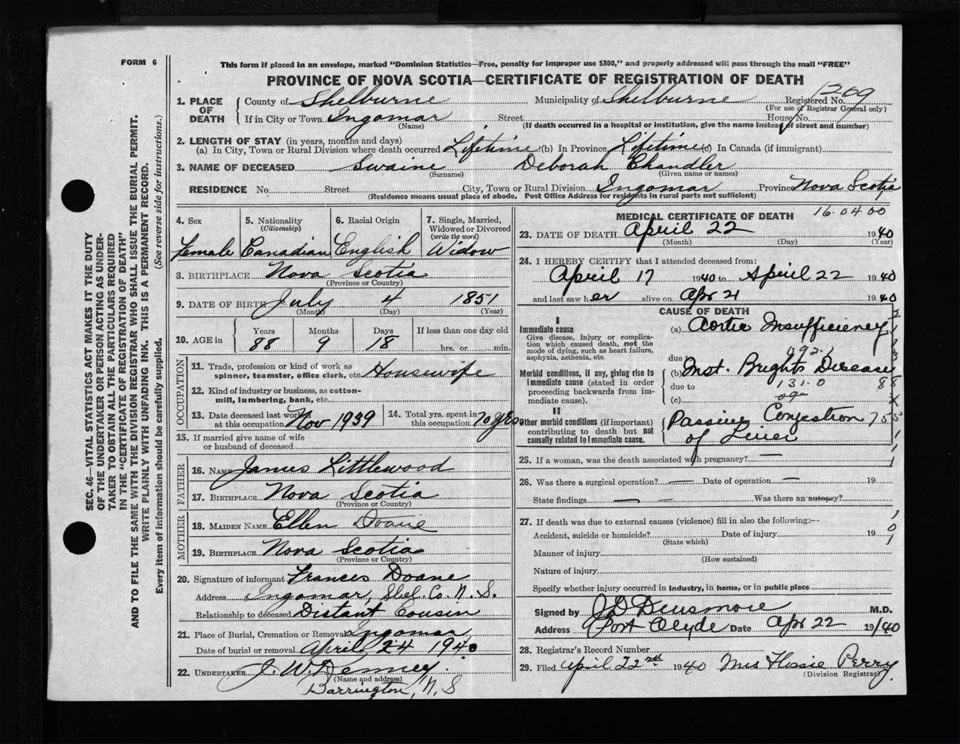 FORM 6
This form if placed in an envelope, marked "Dominion Statistics—Free, penalty for improper use $300," and properly addressed will pass through the mail "FREE"
PROVINCE OF NOVA SCOTIA—CERTIFICATE OF REGISTRATION OF DEATH
1. PLACE OF DEATH
County of Shelburne Municipality of Shelburne Registered No. 1209
(For use of Registrar General only)
If in City or Town Ingomar Street House No.
(Name) (If death occurred in a hospital or institution, give the name instead of street and number)
2. LENGTH OF STAY (in years, months and days)
(a) In City, Town or Rural Division where death occurred Lifetime (b) In Province Lifetime (c) In Canada (if immigrant)
3. NAME OF DECEASED Swaine Deborah Chandler
(Surname) (Given name or names)
RESIDENCE No. Street City, Town or Rural Division Ingomar Province Nova Scotia
(Residence means usual place of abode. Post Office Address for residents in rural parts not sufficient)
4. Sex 5. Nationality (Citizenship) 6. Racial Origin 7. Single, Married, Widowed or Divorced (write the word)
Female Canadian English Widow
8. BIRTHPLACE Nova Scotia
(Province or Country)
9. DATE OF BIRTH July 4 1851
(Month) (Day) (Year)
10. AGE in Years Months Days If less than one day old
88 9 18 hrs. or min.
OCCUPATION
11. Trade, profession or kind of work as spinner, teamster, office clerk, etc. Housewife
12. Kind of industry or business, as cotton-mill, lumbering, bank, etc.
13. Date deceased last worked at this occupation Nov 1939 14. Total yrs. spent in this occupation 70 yrs
15. If married give name of wife or husband of deceased
FATHER
16. NAME James Littlewood
17. BIRTHPLACE Nova Scotia
(Province or Country)
MOTHER
18. MAIDEN NAME Ellen Doane
19. BIRTHPLACE Nova Scotia
(Province or Country)
20. Signature of informant Frances Doane
Address Ingomar, Shel. Co. N. S.
Relationship to deceased Distant Cousin
21. Place of Burial, Cremation or Removal Ingomar
Date of burial or removal April 24 1940
22. UNDERTAKER J. W. Denney
(Name and address)
Barrington, N. S
MEDICAL CERTIFICATE OF DEATH
16.04.00
23. DATE OF DEATH April 22 1940
(Month) (Day) (Year)
24. I HEREBY CERTIFY that I attended deceased from:
April 17 1940 to April 22 1940
and last saw her alive on Apr 21 1940
CAUSE OF DEATH
I
Immediate cause
Give disease, injury or complication which caused death, not the mode of dying, such as heart failure, asphyxia, asthenia, etc.
(a) Aortic Insufficiency
due to 092.
Morbid conditions, if any, giving rise to immediate cause (stated in order proceeding backwards from immediate cause).
(b) Inst. Brights Disease
due to 131.0
(c)
II
Other morbid conditions (if important) contributing to death but not causally related to immediate cause.
Passive Congestion of Liver
25. If a woman, was the death associated with pregnancy?
26. Was there a surgical operation? Date of operation 19
State findings Was there an autopsy?
27. If death was due to external causes (violence) fill in also the following:—
Accident, suicide or homicide? Date of injury 19
(State which)
Manner of injury
(How sustained)
Nature of injury
Specify whether injury occurred in industry, in home, or in public place
Signed by J D Densmore M.D.
Address Port Clyde Date Apr 22 1940
28. Registrar's Record Number
29. Filed April 22nd 1940 Mrs Flossie Perry
(Division Registrar)
SEC. 46—VITAL STATISTICS ACT MAKES IT THE DUTY
OF THE UNDERTAKER OR PERSON ACTING AS UNDERTAKER TO OBTAIN ALL THE PARTICULARS REQUIRED
IN THE "CERTIFICATE OF REGISTRATION OF DEATH"
AND TO FILE THE SAME WITH THE DIVISION REGISTRAR WHO SHALL ISSUE THE BURIAL PERMIT.
WRITE PLAINLY WITH UNFADING INK. THIS IS A PERMANENT RECORD.
Every item of information should be carefully supplied. (See reverse side for instructions.)